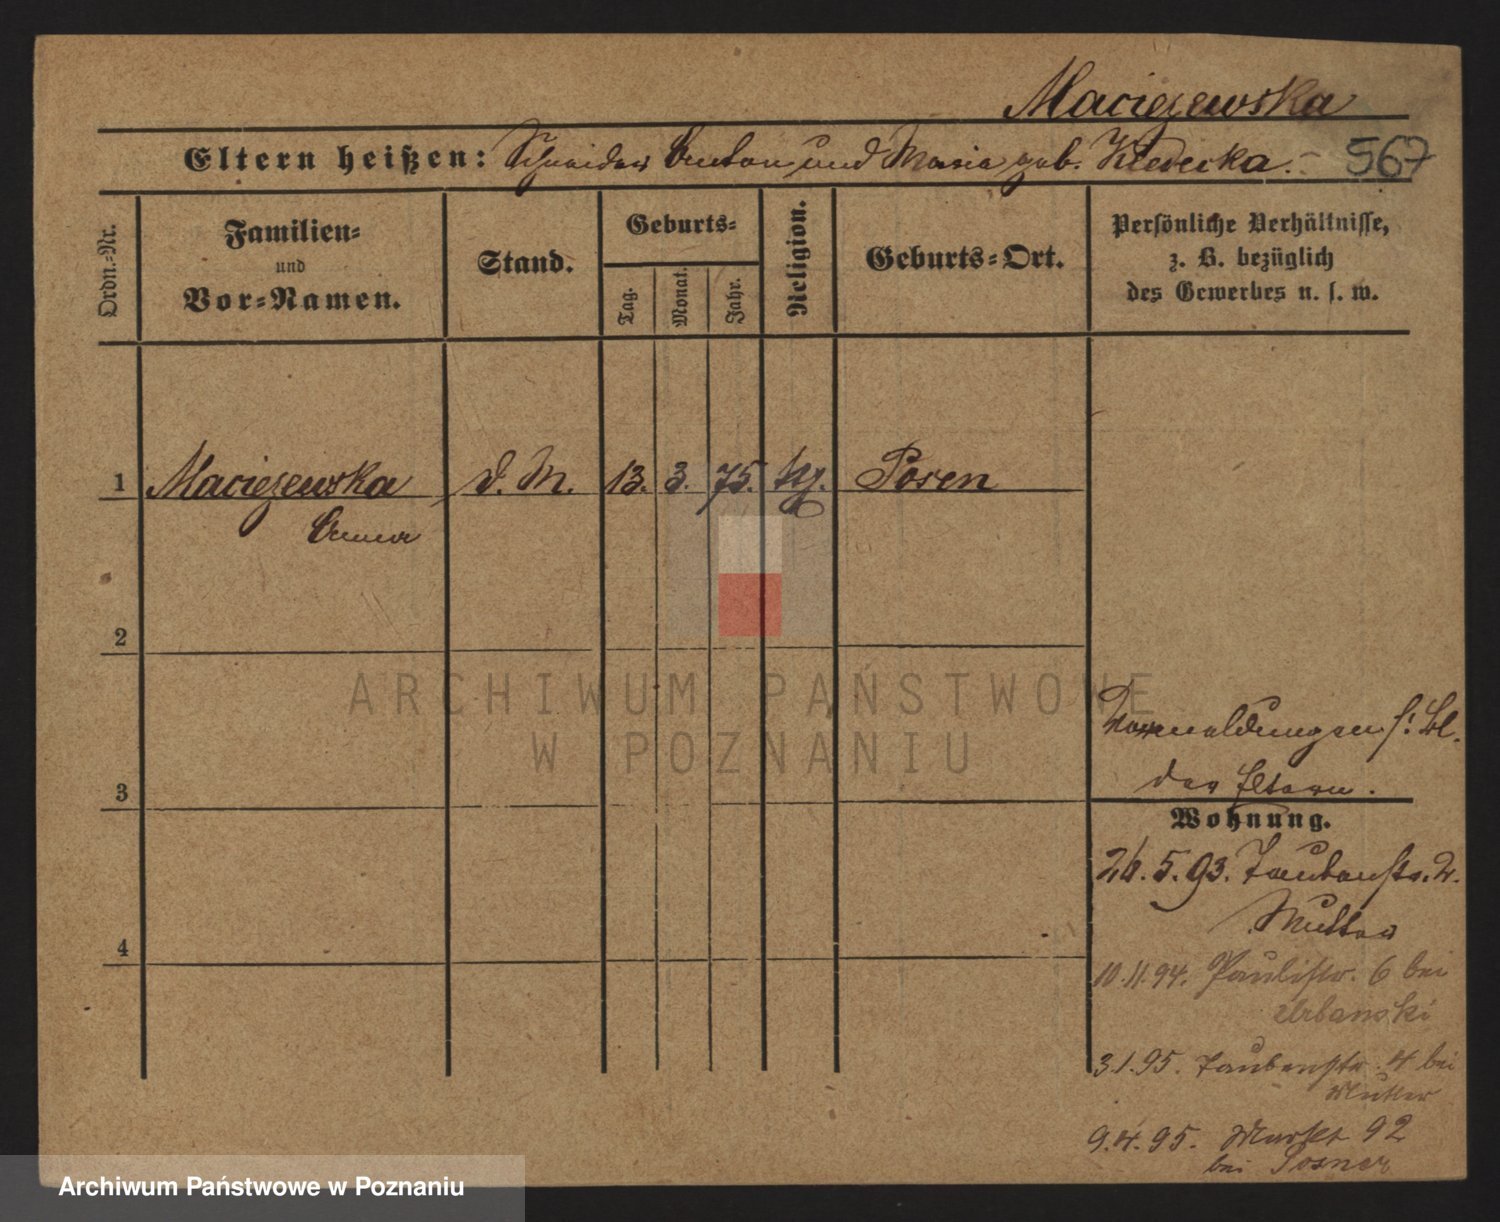 Maciejewska
Eltern heißen: Schneider Anton und Maria geb. Kledecka.
567
Ordn.-Nr.
Familien-
und
Vor-Namen.
Stand.
Geburts-
Tag.
Monat.
Jahr.
Religion.
Geburts-Ort.
Persönliche Verhältnisse,
z. B. bezüglich
des Gewerbes u. s. w.
1 Maciejewska d. M. 13. 3. 75. Posen
Anna
2
3
4
meldungen s. Bl.
der Eltern.
Wohnung.
26. 5. 93. Taubenstr. 4.
Mutter
10.11.94. Paulistr. 6 bei
Urbanski
3.1.95. Taubenstr. 4 bei
Mutter
9.4.95. Markt 92
bei Posner
ARCHIWUM PAŃSTWOWE
W POZNANIU
Archiwum Państwowe w Poznaniu